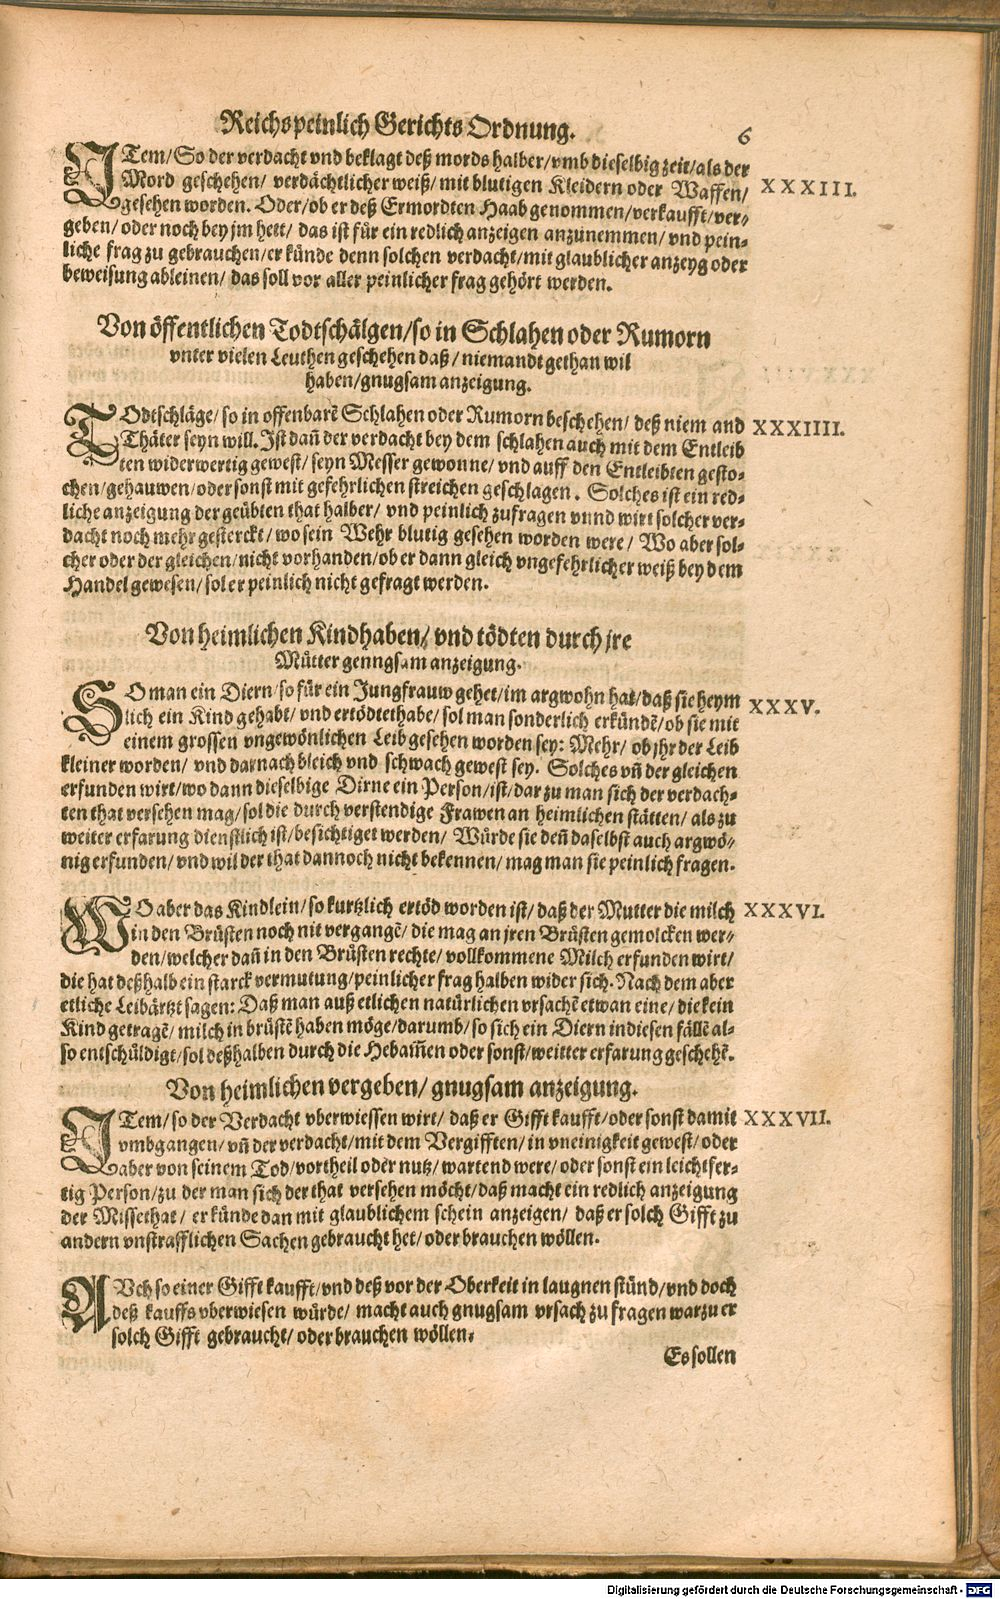 Reichspeinlich Gerichts Ordnung.
6
ITem/ So der verdacht vnd beklagt deß mords halber/ vmb dieselbig zeit/ als der
Mord geschehen/ verdächtlicher weiß/ mit blutigen Kleidern oder Waffen/
gesehen worden. Oder/ ob er deß Ermordten Haab genommen/ verkaufft/ ver-
geben/ oder noch bey jm hett/ das ist für ein redlich anzeigen anzunemmen/ vnd pein-
liche frag zu gebrauchen/ er künde denn solchen verdacht/ mit glaublicher anzeyg oder
beweisung ableinen/ das soll vor aller peinlicher frag gehört werden.
XXXIII.
Von öffentlichen Todtschälgen/ so in Schlahen oder Rumorn
vnter vielen Leuthen geschehen daß/ niemandt gethan wil
haben/ gnugsam anzeigung.
TOdtschläge/ so in offenbarẽ Schlahen oder Rumorn beschehen/ deß niem and
Thäter seyn will. Ist dañ der verdacht bey dem schlahen auch mit dem Entleib
ten widerwertig gewest/ seyn Messer gewonne/ vnd auff den Entleibten gesto-
chen/ gehauwen/ oder sonst mit gefehrlichen streichen geschlagen. Solches ist ein red-
liche anzeigung der geübten that halber/ vnd peinlich zufragen vnnd wirt solcher ver-
dacht noch mehr gesterckt/ wo sein Wehr blutig gesehen worden were/ Wo aber sol-
cher oder der gleichen/ nicht vorhanden/ ob er dann gleich vngefehrlicher weiß bey dem
Handel gewesen/ sol er peinlich nicht gefragt werden.
XXXIIII.
Von heimlichen Kindhaben/ vnd tödten durch jre
Mütter genngsam anzeigung.
SO man ein Diern/ so für ein Jungfrauw gehet/ im argwohn hat/ daß sie heym
lich ein Kind gehabt/ vnd ertödtet habe/ sol man sonderlich erkündẽ/ ob sie mit
einem grossen vngewönlichen Leib gesehen worden sey: Mehr/ ob jhr der Leib
kleiner worden/ vnd darnach bleich vnd schwach gewest sey. Solches vñ der gleichen
erfunden wirt/ wo dann dieselbige Dirne ein Person/ ist/ dar zu man sich der verdach-
ten that versehen mag/ sol die durch verstendige Frawen an heimlichen stätten/ als zu
weiter erfarung dienstlich ist/ besichtiget werden/ Würde sie deñ daselbst auch argwö-
nig erfunden/ vnd wil der that dannoch nicht bekennen/ mag man sie peinlich fragen.
XXXV.
WO aber das Kindlein/ so kurtzlich ertöd worden ist/ daß der Mutter die milch
in den Brüsten noch nit vergangẽ/ die mag an jren Brüsten gemolcken wer-
den/ welcher dañ in den Brüsten rechte/ vollkommene Milch erfunden wirt/
die hat deßhalb ein starck vermutung/ peinlicher frag halben wider sich. Nach dem aber
etliche Leibärtzt sagen: Daß man auß etlichen natürlichen vrsachẽ etwan eine/ die kein
Kind getragẽ/ milch in brüstẽ haben möge/ darumb/ so sich ein Diern in diesen fällẽ al-
so entschüldigt/ sol deßhalben durch die Hebam̃en oder sonst/ weitter erfarung geschehẽ.
XXXVI.
Von heimlichen vergeben/ gnugsam anzeigung.
ITem/ so der Verdacht vberwiessen wirt/ daß er Gifft kaufft/ oder sonst damit
vmbgangen/ vñ der verdacht/ mit dem Vergifften/ in vneinigkeit gewest/ oder
aber von seinem Tod/ vortheil oder nutz/ wartend were/ oder sonst ein leichtfer-
tig Person/ zu der man sich der that versehen möcht/ daß macht ein redlich anzeigung
der Missethat/ er künde dan mit glaublichem schein anzeigen/ daß er solch Gifft zu
andern vnstrafflichen Sachen gebraucht het/ oder brauchen wöllen.
XXXVII.
AVch so einer Gifft kaufft/ vnd deß vor der Oberkeit in laugnen stünd/ vnd doch
deß kauffs vberwiesen würde/ macht auch gnugsam vrsach zu fragen warzu er
solch Gifft gebraucht/ oder brauchen wöllen.
Es sollen
Digitalisierung gefördert durch die Deutsche Forschungsgemeinschaft - DFG